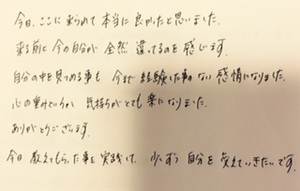 今日、ここに来られて本当に良かったと思いました。
来る前と今の自分が全然違ってるのを感じます。
自分の中を見つめる事も今まで経験した事のない感情になりました。
心の重みていうか気持ちがとても楽になりました。
ありがとうございます。
今日教えてもらった事を実践して、少しずつ自分を変えていきたいです